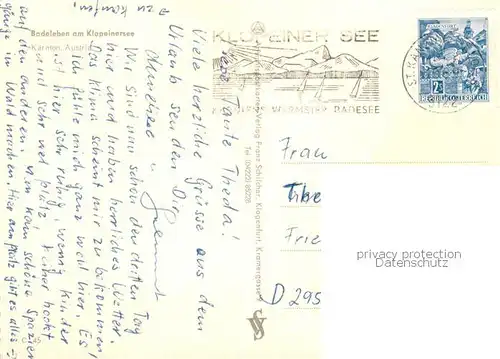 → zu kaufen!
Badeleben am Klopeinersee
Kärnten, Austria
KLOPEINER SEE
KÄRNTENS WÄRMSTER BADESEE
ST. KANZIAN
REPUBLIK ÖSTERREICH
2S
Liebe Tante Theda!
Viele herzliche Grüsse aus dem
Urlaub senden Dir
Anneliese u.
Wir sind nun schon den dritten Tag
hier und haben herrliches Wetter.
Das Klima scheint mir zu bekommen,
ich fühle mich ganz wohl hier. Es
ist hier sehr ruhig, wenig Kinder
und sehr viel Platz. Keiner hockt
auf den anderen. Man kann schöne Spazier-
gänge im Wald machen. Hier am Platz gibt es alles →
Verlag Franz Schilcher, Klagenfurt,
Tel. (04222) 85228
Frau
Frie
D 295
privacy protection
Datenschutz